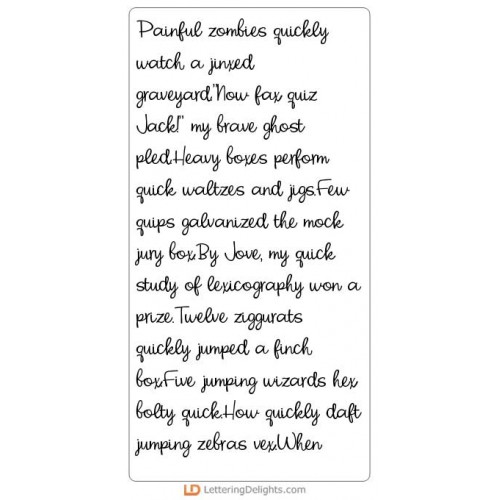 Painful zombies quickly
watch a jinxed
graveyard."Now fax quiz
Jack!" my brave ghost
pled.Heavy boxes perform
quick waltzes and jigs.Few
quips galvanized the mock
jury box.By Jove, my quick
study of lexicography won a
prize.Twelve ziggurats
quickly jumped a finch
box.Five jumping wizards hex
bolty quick.How quickly daft
jumping zebras vex.When
LD LetteringDelights.com